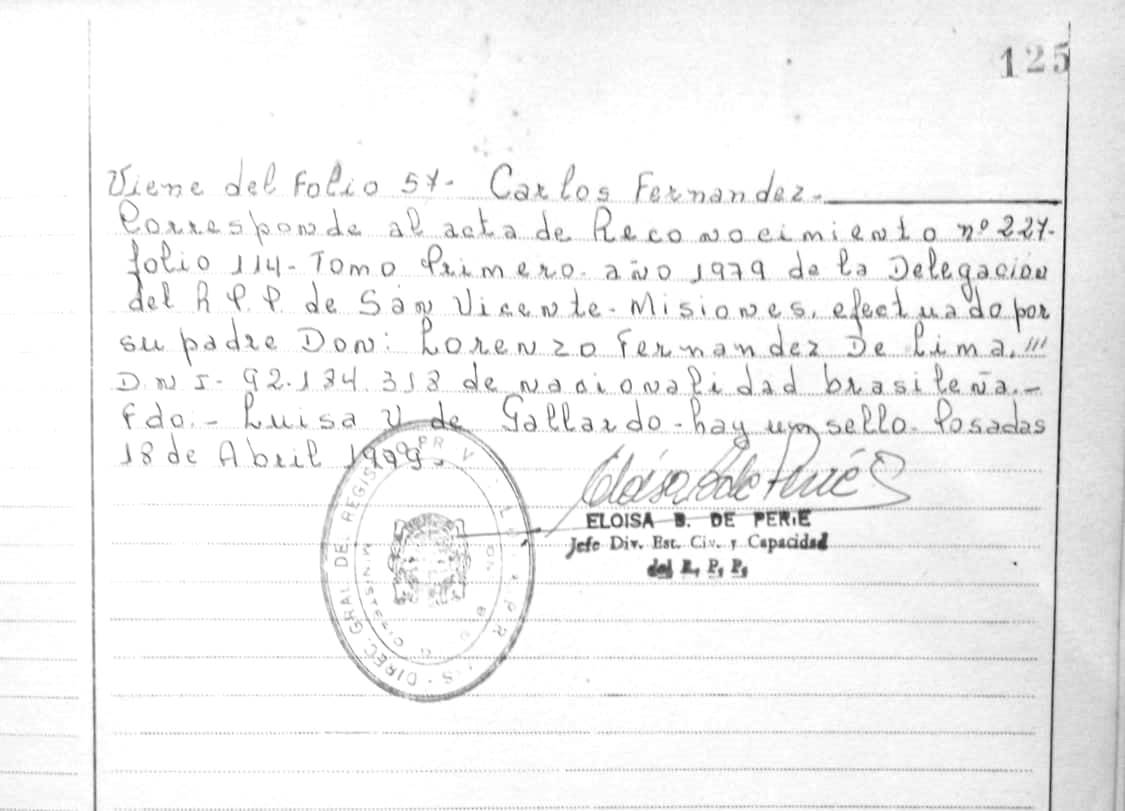 125
Viene del Folio 57- Carlos Fernandez.-
Corresponde al acta de Reconocimiento nº 227-
folio 114- Tomo Primero. año 1979 de la Delegación
del R.P.P. de San Vicente-Misiones, efectuado por
su padre Don: Lorenzo Fernandez De Lima,
D.N.I- 92.134.313 de nacionalidad brasileña.-
Fdo.- Luisa V. de Gallardo-hay un sello. Posadas
18 de Abril 1979.
ELOISA B. DE PERIE
Jefe Div. Est. Civ. y Capacidad
del R. P. P.
DIREC. GRAL DE. REGIS
MINISTERIO